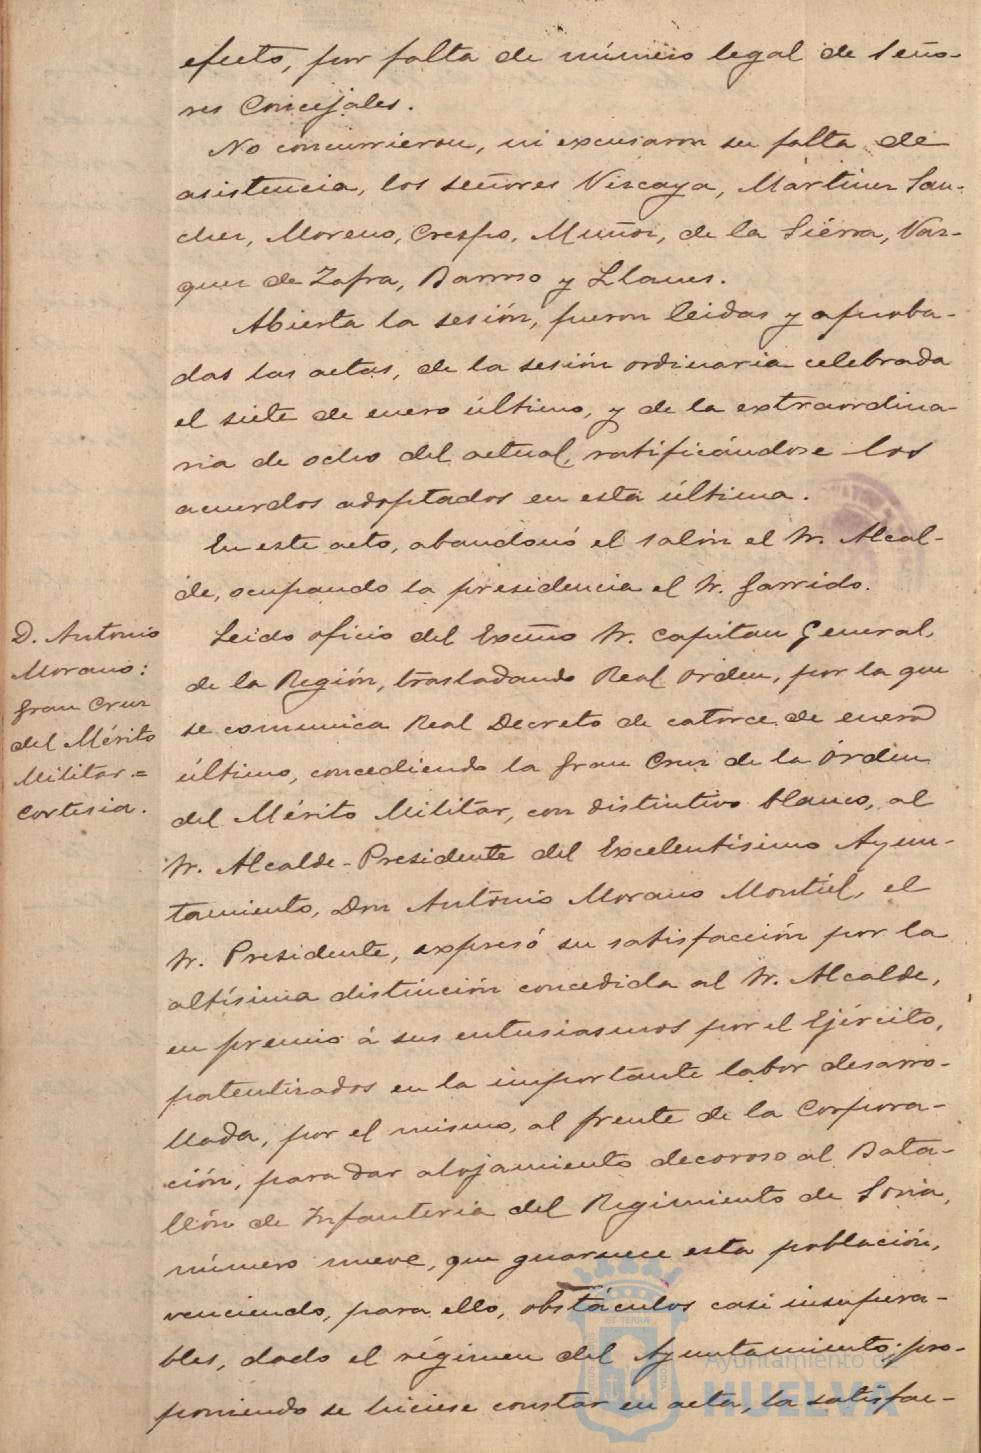 efecto, por falta de número legal de Seño-
res Concejales.
No concurrieron, ni excusaron su falta de
asistencia, los señores Vizcaya, Mártinez San-
chez, Moreno, Crespo, Muñoz, de la Siérra, Vaz-
quez de Zafra, Barroso y Llanes.
Abierta la sesión, fueron leidas y aproba-
das las actas, de la sesión ordinaria celebrada
el siete de enero último, y de la extraordina-
ria de ocho del actual, ratificándose los
acuerdos adoptados en esta última.
En este acto, abandonó el salón el Sr. Alcal-
de, ocupando la presidencia el Sr. Garrido.
D. Antonio
Morano:
Gran Cruz
del Mérito
Militar =
Cortesia.
Leido oficio del Excmo Sr. Capitan General,
de la Región, trasladando Real Orden, por la que
se comunica Real Decreto de catorce de enero
último, concediendo la Gran Cruz de la Órden
del Mérito Militar, con distintivo blanco, al
Sr. Alcalde-Presidente del Excelentísimo Ayun-
tamiento, Don António Morano Montiel, el
Sr. Presidente, expresó su satisfacción por la
altísima distinción concedida al Sr. Alcalde,
en premio á sus entusiasmos por el Ejército,
patentizados en la importante labor desarro-
llada, por el mismo, al frente de la Corpora-
ción, para dar alojamiento decoroso al Bata-
llón de Infanteria del Regimiento de Soria,
número nueve, que guarnece esta población,
venciendo, para ello, obstáculos casi insupera-
bles, dado el régimen del Ayuntamiento; pro-
poniendo se hiciese constar en acta, la satisfac-
Ayuntamiento de
HUELVA